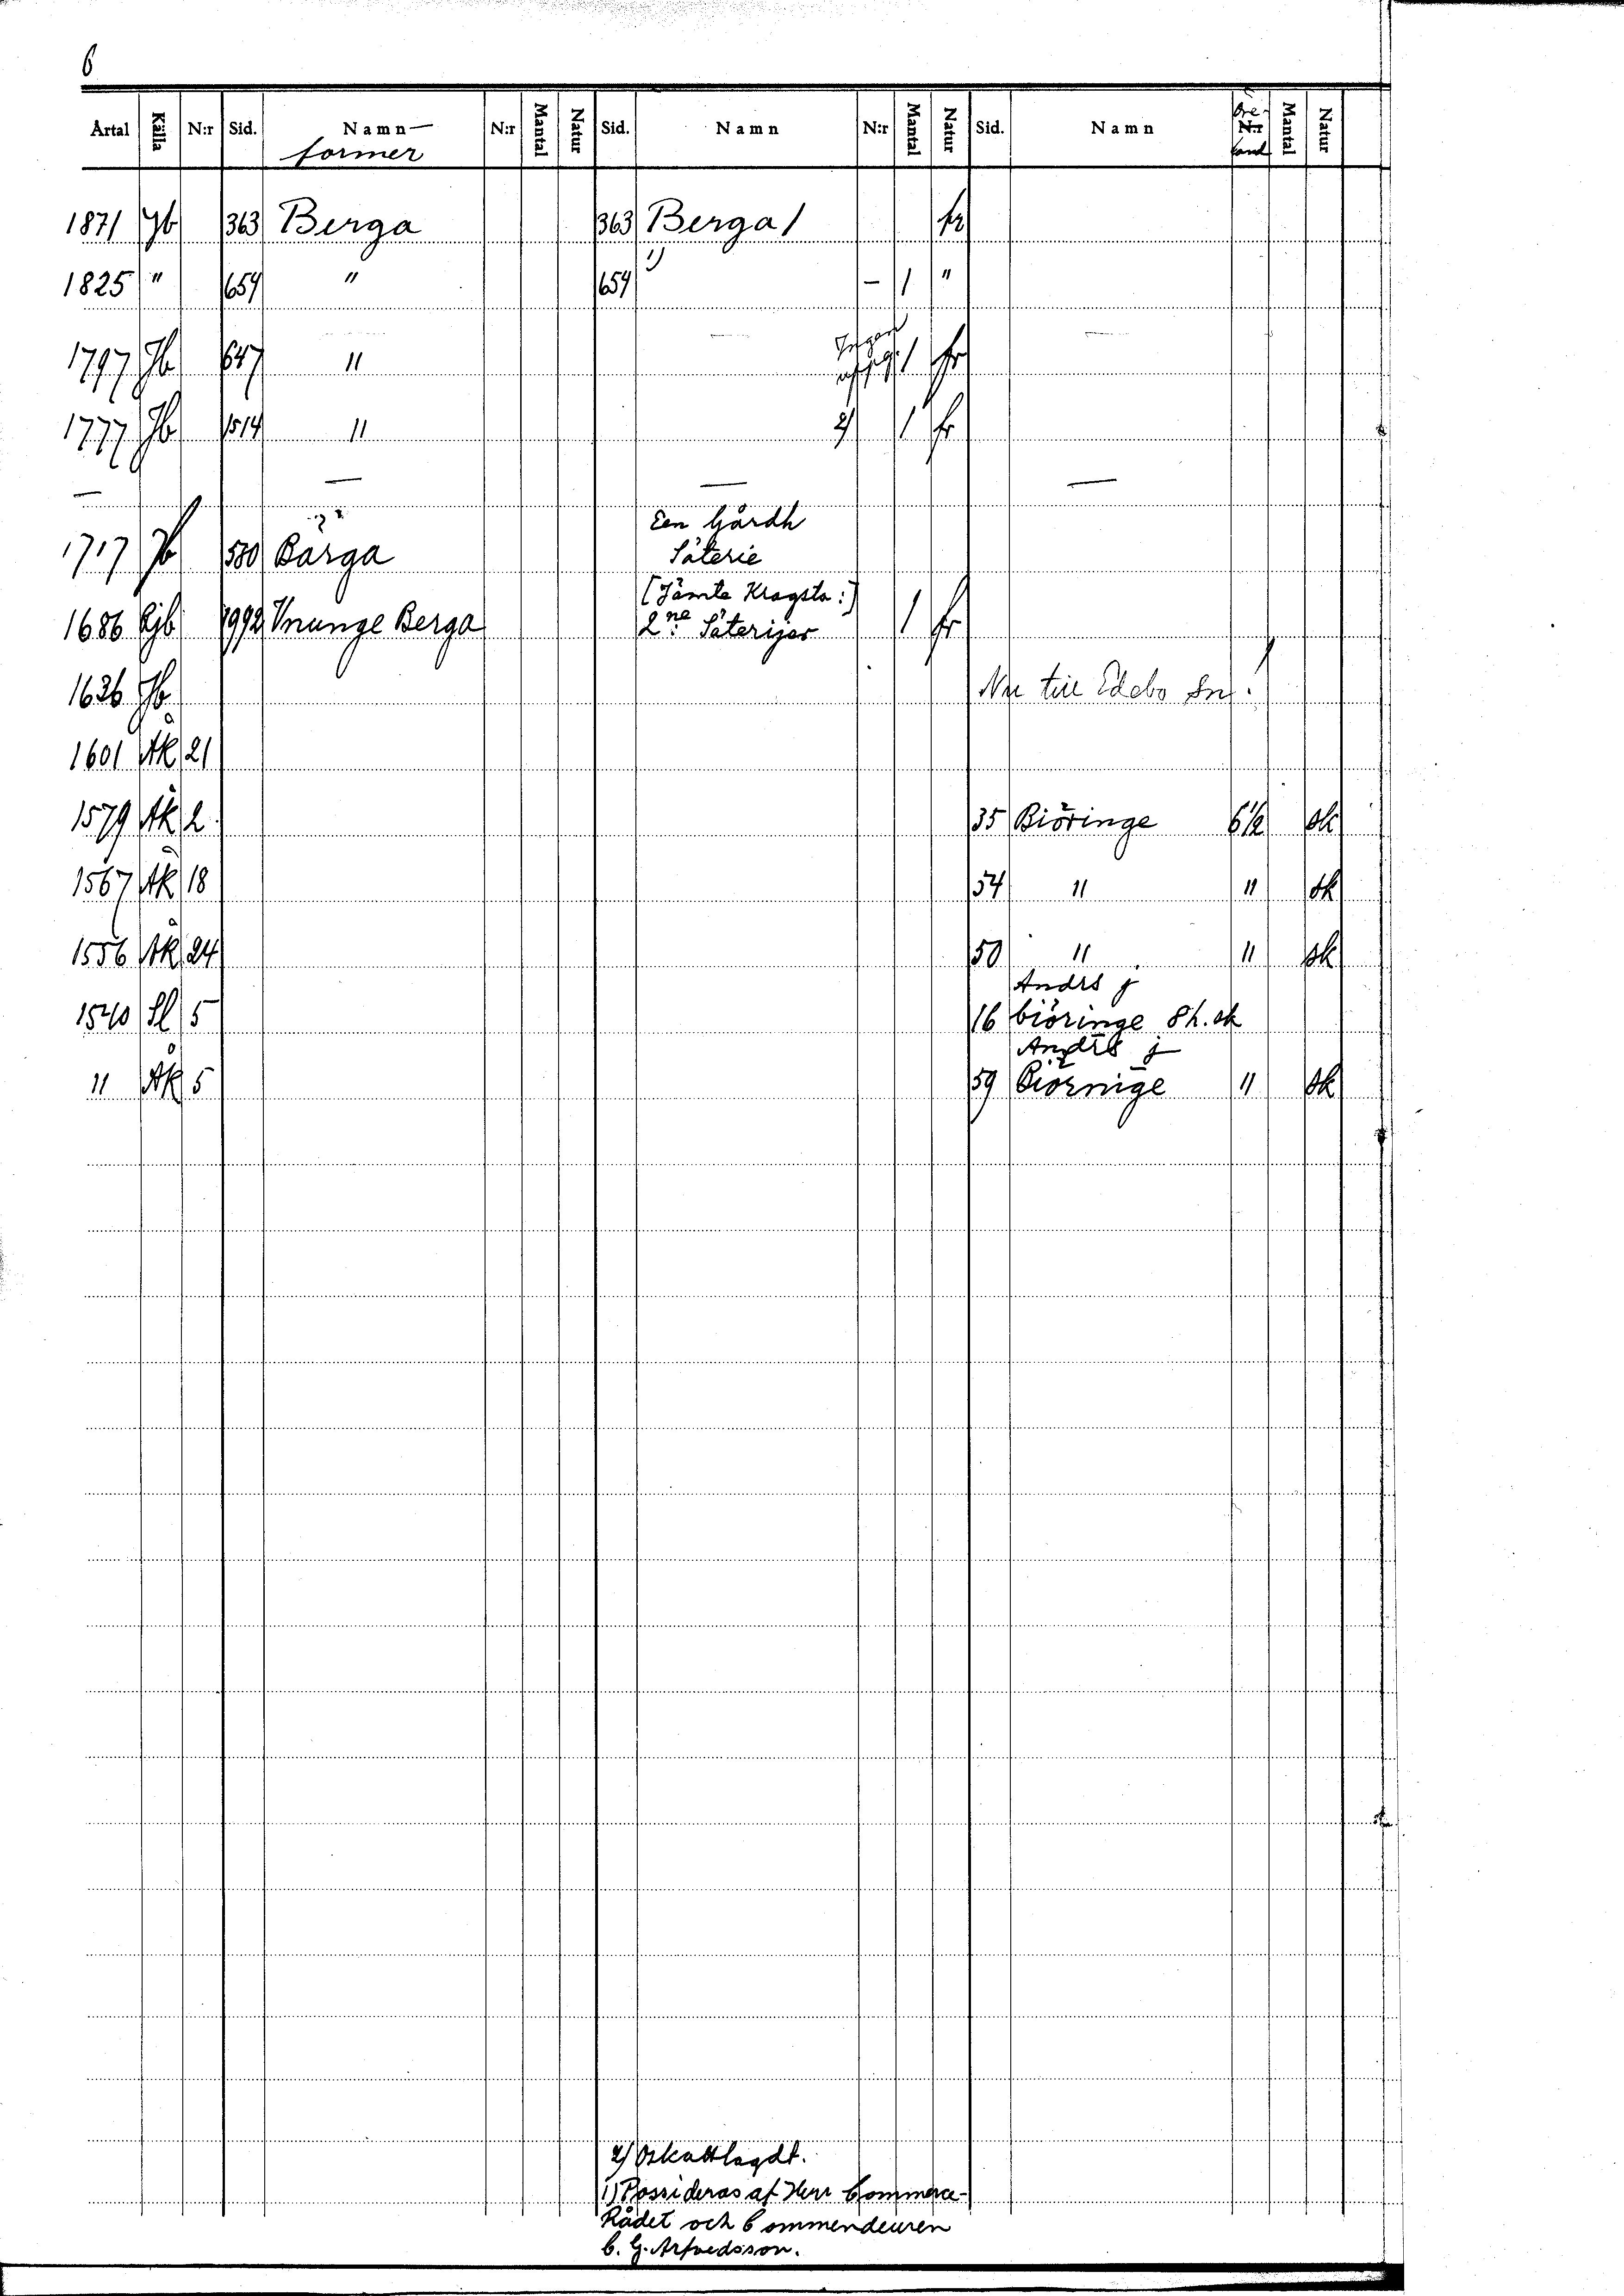 6
Årtal Källa N:r Sid. Namn- N:r Mantal Natur Sid. Namn N:r Mantal Natur Sid. Namn Öre- N:r Mantal Natur
former land
1871 Jb 363 Berga 363 Berga 1 fr
1825 " 654 " 654 1) - 1 "
Ingen
1797 Jb 647 " uppg. 1 fr
1777 Jb 1514 " 2) 1 fr
— — — —
Een Gårdh
1717 Jb 580 Bärga Säterie
[Jämte Kragsta:]
1686 Rjb 1992 Vnunge Berga 2ne Säterijer 1 fr
1636 Jb Nu till Edebo Sn.
1601 Åk 21
1579 Åk 2 35 Biöringe 6 1/2 sk
1567 Åk 18 54 " " sk
1556 Åk 24 50 " " sk
Andrs j
1540 Sl 5 16 biöringe 8 h. sk
Andrs j
" Åk 5 59 Biörnige " sk
2) Oskattlagdt.
1) Possideras af Herr Commerce-
Rådet och Commendeuren
C. G. Arfvedsson.